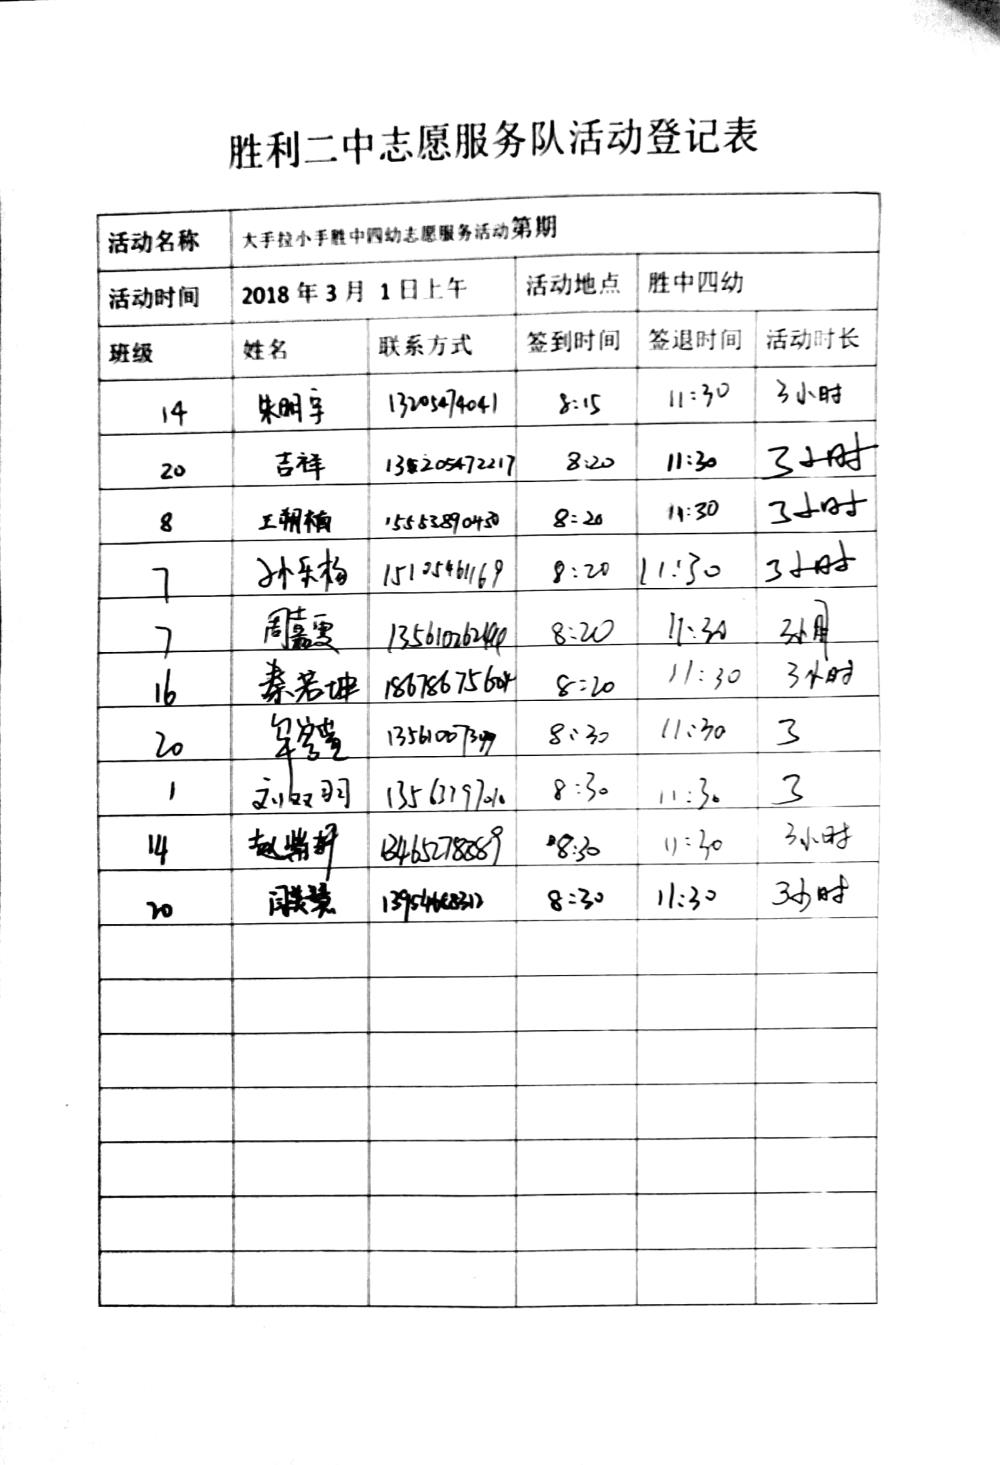 胜利二中志愿服务队活动登记表
活动名称 大手拉小手胜中四幼志愿服务活动第期
活动时间 2018年3月 1日上午 活动地点 胜中四幼
班级 姓名 联系方式 签到时间 签退时间 活动时长
14 朱明宇 13205474041 8:15 11:30 3小时
20 吉祥 8:20 11:30 3小时
8 8:20 11:30 3小时
7 孙乐梅 15105461169 8:20 11:30 3小时
7 周嘉雯 8:20 11:30 3小时
16 秦若坤 8:20 11:30 3小时
20 8:30 11:30 3
1 8:30 11:30 3
14 13465278889 8:30 11:30 3小时
20 8:30 11:30 3小时